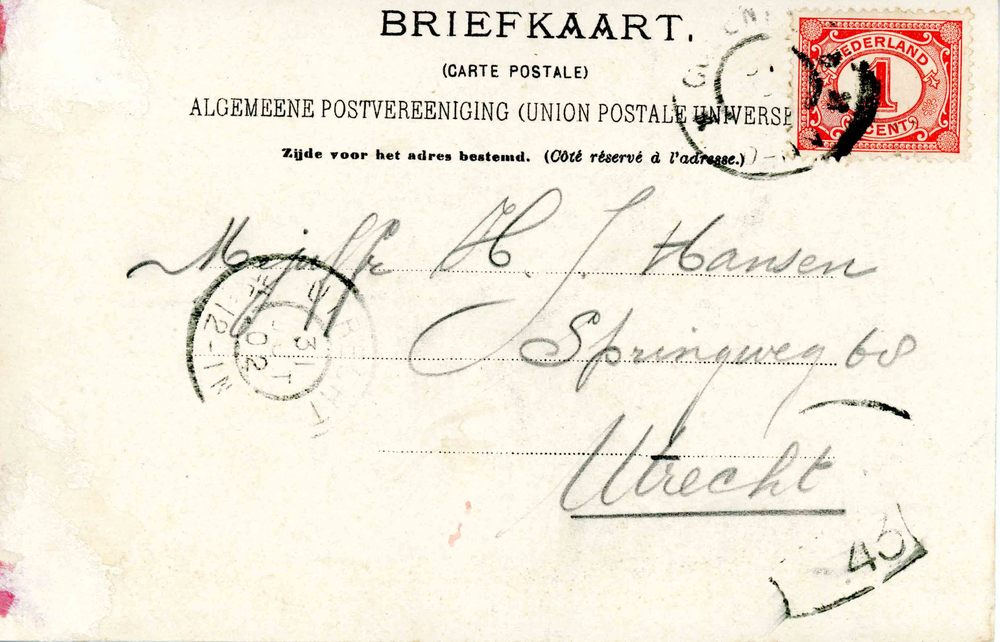 BRIEFKAART.
(CARTE POSTALE)
ALGEMEENE POSTVEREENIGING (UNION POSTALE UNIVERSE
Zijde voor het adres bestemd. (Côté réservé à l'adresse.)
NEDERLAND
1
CENT
Mejuffr H. J. Hansen
Springweg 68
Utrecht
UTRECHT
31
02
12-1N